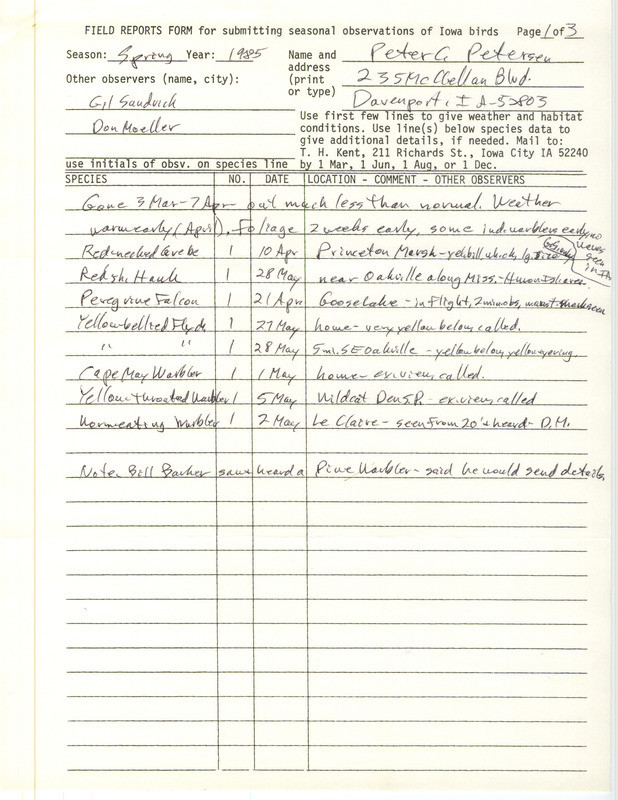 FIELD REPORTS FORM for submitting seasonal observations of Iowa birds Page 1 of 3
Season: Spring Year: 1985 Name and Peter C. Petersen
address 235 McClellan Blvd.
Other observers (name, city): (print
or type) Davenport, IA-52803
Gil Sandvick
Don Moeller
Use first few lines to give weather and habitat
conditions. Use line(s) below species data to
give additional details, if needed. Mail to:
T. H. Kent, 211 Richards St., Iowa City IA 52240
use initials of obsv. on species line by 1 Mar, 1 Jun, 1 Aug, or 1 Dec.
SPECIES NO. DATE LOCATION - COMMENT - OTHER OBSERVERS
Gone 3 Mar-7 Apr out much less than normal. Weather
warm early (April), Foliage 2 weeks early, some ind. warblers early no
waves
seen
Red-necked Grebe 1 10 Apr Princeton Marsh - yel. bill, lg. size
Red sh. Hawk 1 28 May near Oakville along Miss. -
Peregrine Falcon 1 21 Apr Goose Lake - in flight, 2 min obs,
Yellow-bellied Flyc 1 27 May home - very yellow below, called.
" " 1 28 May 5 mi. SE Oakville - yellow below, yellow eyering.
Cape May Warbler 1 1 May home - ex. view, called.
Yellow-throated Warbler 1 5 May Wildcat Den S.P. - ex. view, called
Worm eating Warbler 1 2 May Le Claire - seen from 20' + heard - D.M.
Note: Bill Barker saw + heard a Pine Warbler - said he would send details.